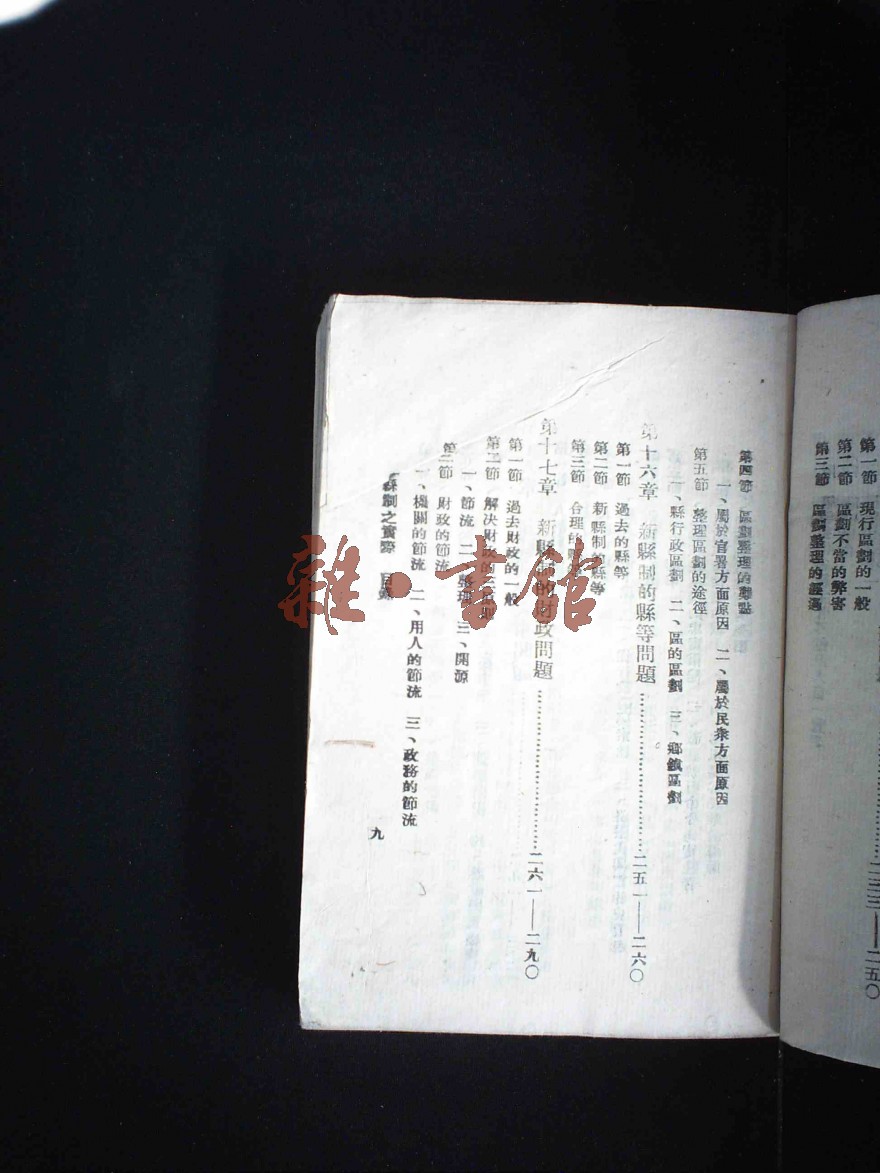 第一節　現行區劃的一般
第二節　區劃不當的弊害
第三節　區劃整理的經過
二三三——二五〇
第四節　區劃整理的難點
一、屬於官署方面原因　二、屬於民衆方面原因
第五節　整理區劃的途徑
一、縣行政區劃　二、區的區劃　三、鄉鎮區劃
第十六章　新縣制的縣等問題……二五一——二六〇
第一節　過去的縣等
第二節　新縣制的縣等
第三節　合理的縣等
第十七章　新縣制的財政問題……二六一——二九〇
第一節　過去財政的一般
第二節　解決財政的
一、節流　二、整理　三、開源
第三節　財政的節流
一、機關的節流　二、用人的節流　三、政務的節流
縣制之實際　目錄
九
雜·書館